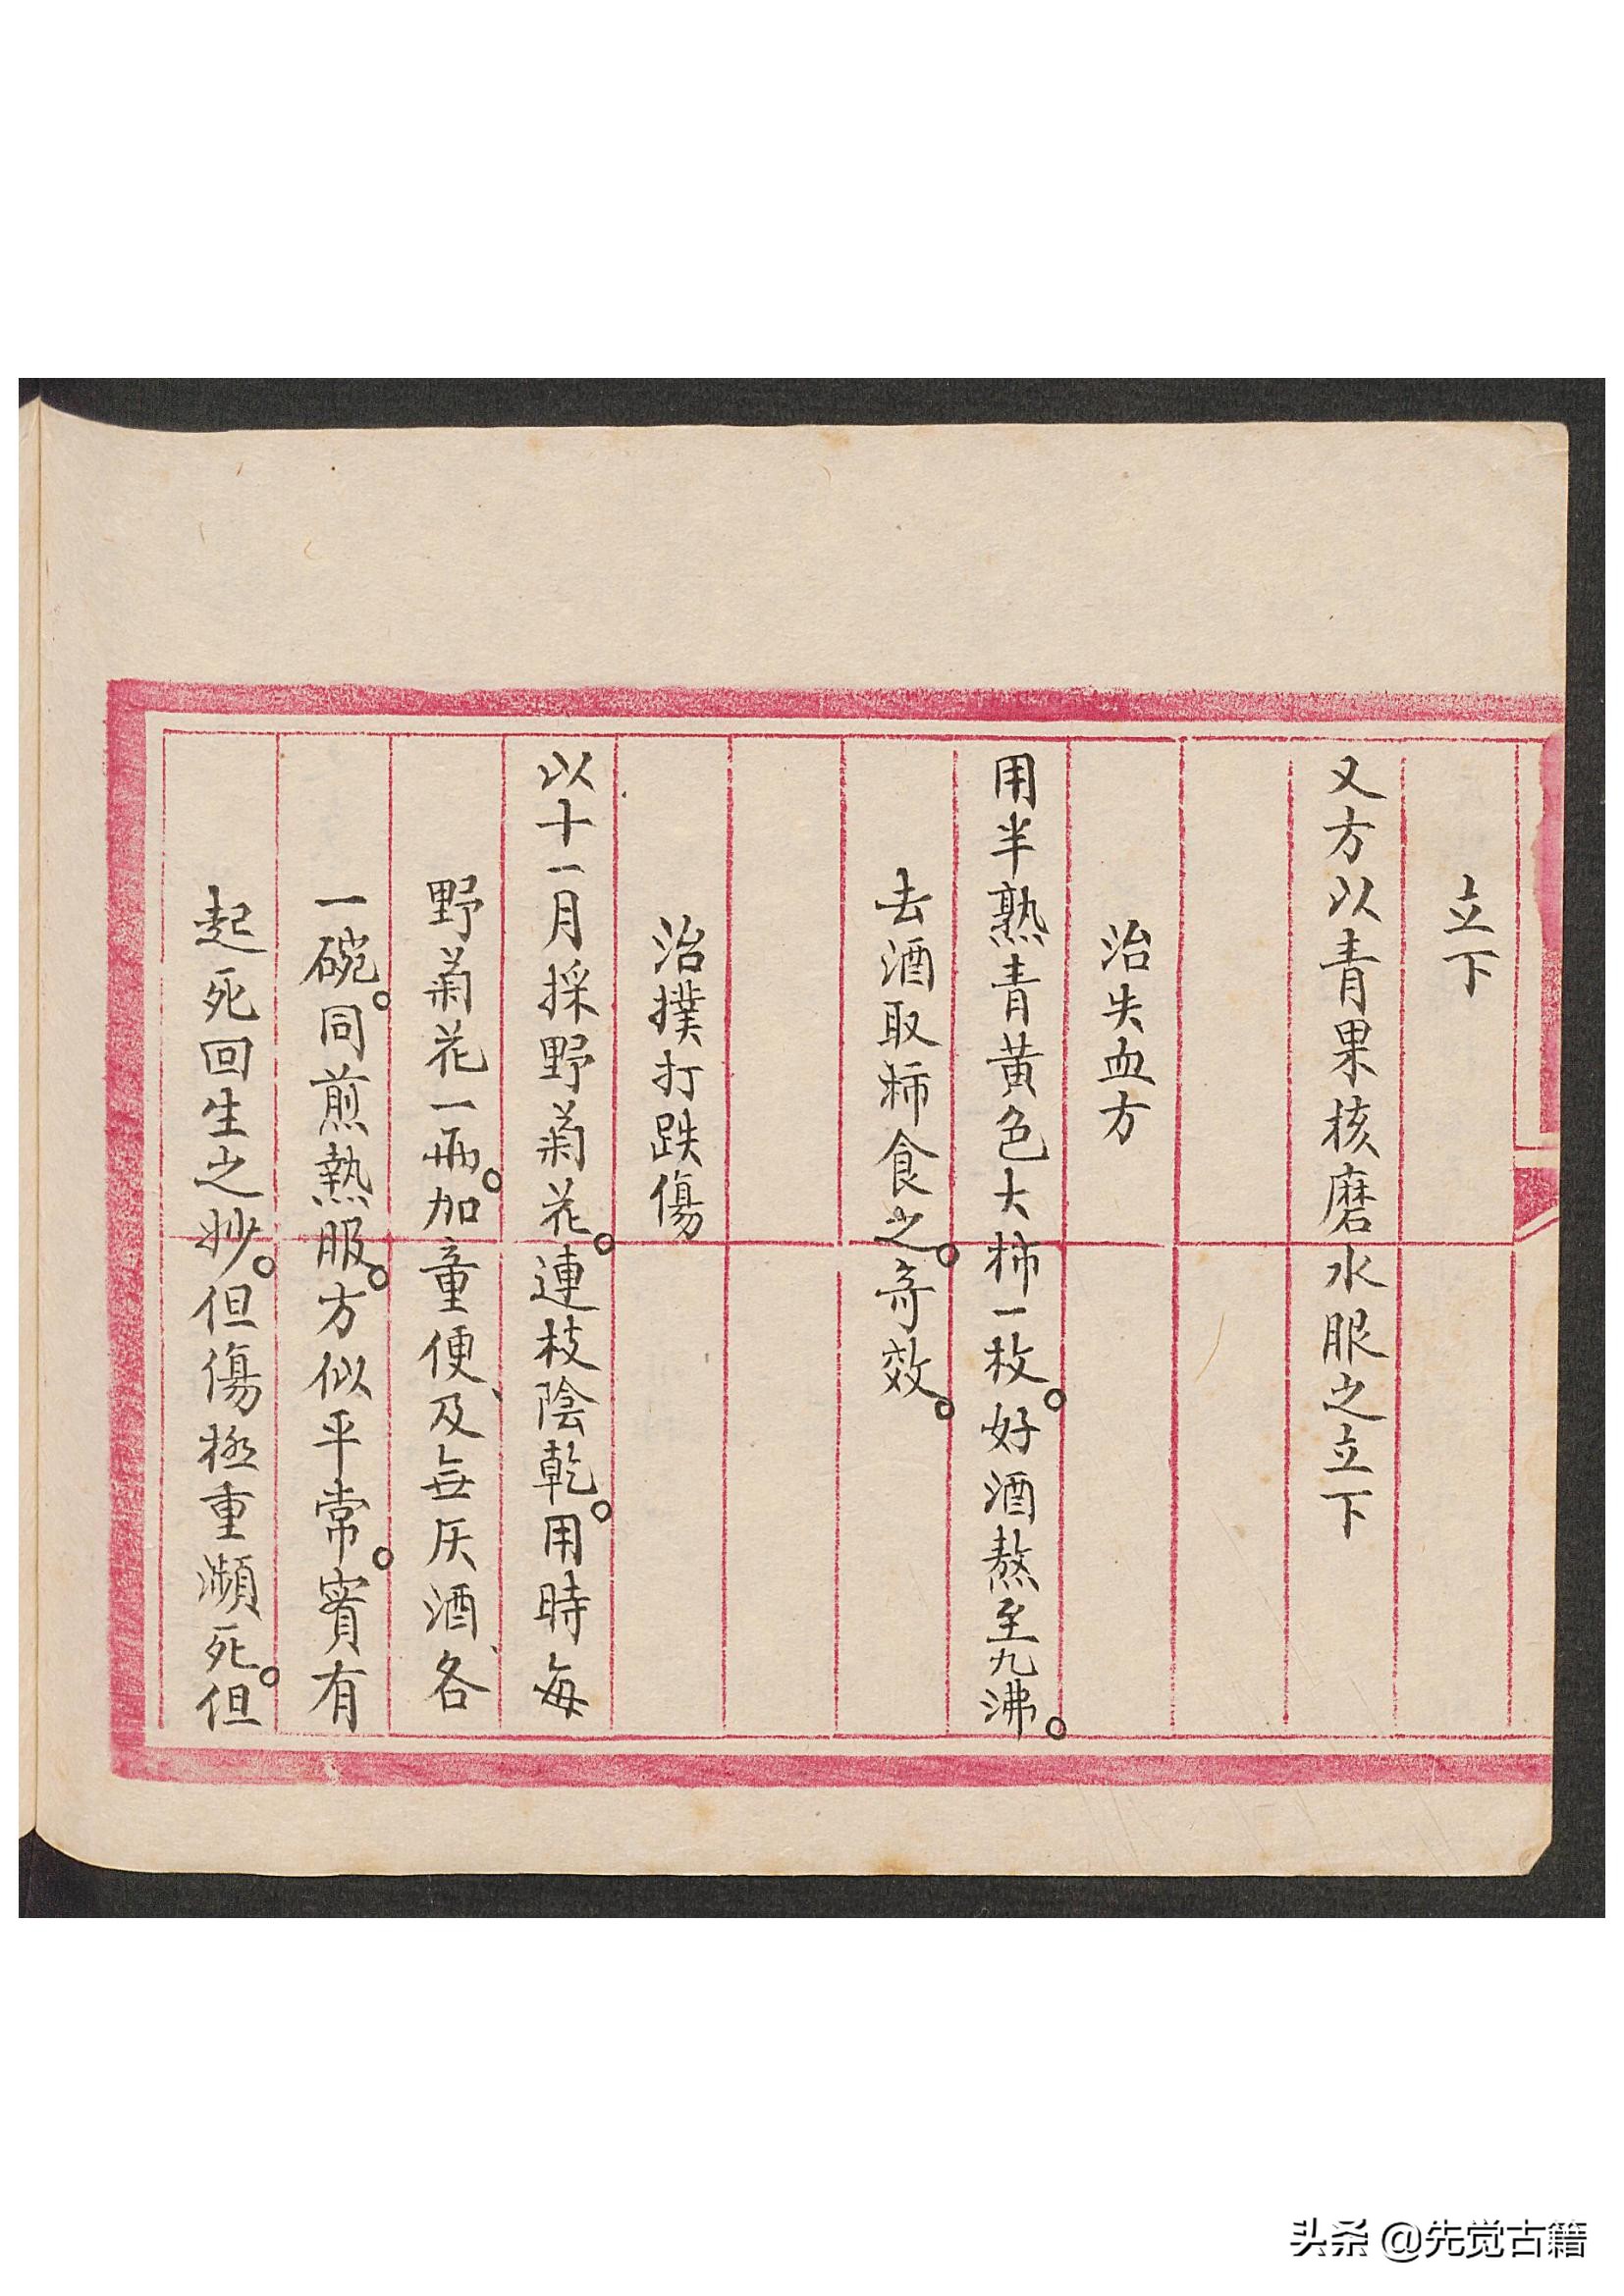 立下
又方以青果核磨水服之立下
治失血方
用半熟青黃色大柿一枚。好酒熬至九沸。
去酒取柿食之。奇效。
治撲打跌傷
以十一月採野菊花。連枝陰乾。用時每
野菊花一兩。加童便、及無灰酒、各
一碗。同煎熱服。方似平常。實有
起死回生之妙。但傷極重瀕死。但
头条 @先觉古籍